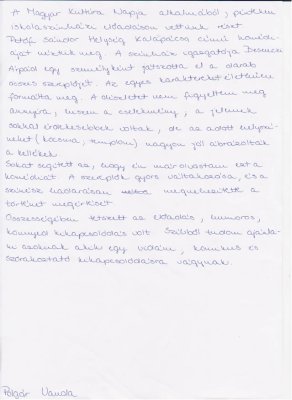 A Magyar Kultúra Napja alkalmából, pénteken
iskolaszínházi előadáson vettünk részt
Petőfi Sándor Helység Kalapácsa című komédi-
áját néztük meg. A színház igazgatója
Árpád egy személyként játszotta el a darab
összes szereplőjét. Az egyes karaktereket élethűen
formálta meg. A díszletet nem figyeltem meg
annyira, hiszen a cselekmény, a jelenek
sokkal érdekesebbek voltak, de az adott helyszí-
neket (kocsma, templom) nagyon jól ábrázolták
a kellékek.
Sokat segített az, hogy én már olvastam ezt a
komédiát. A szereplők gyors váltakozása, és a
színész hadarásán megnehezítették a
történet megértését.
Összességében tetszett az előadás, humoros,
könnyed kikapcsolódás volt. Szívből tudom ajánla-
ni azoknak akik egy vidám, komikus és
szórakoztató kikapcsolódásra vágynak.
Polgár Vanda